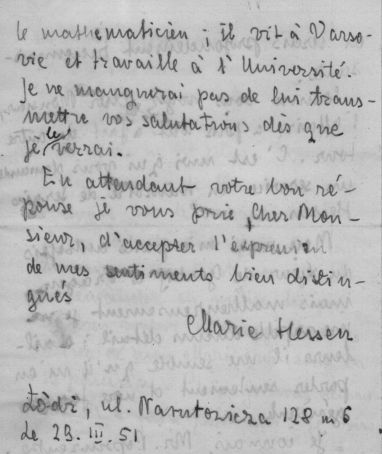 le mathématicien ; il vit à Varso-
vie et travaille à l'Université.
Je ne manquerai pas de lui trans-
mettre vos salutations dès que
je le verrai.
En attendant votre bon ré-
ponse je vous prie, Cher Mon-
sieur, d'accepter l'expression
de mes sentiments bien distin-
gués
Marie Hessen
Łódź, ul. Narutowicza 128 m 6
le 29. III. 51